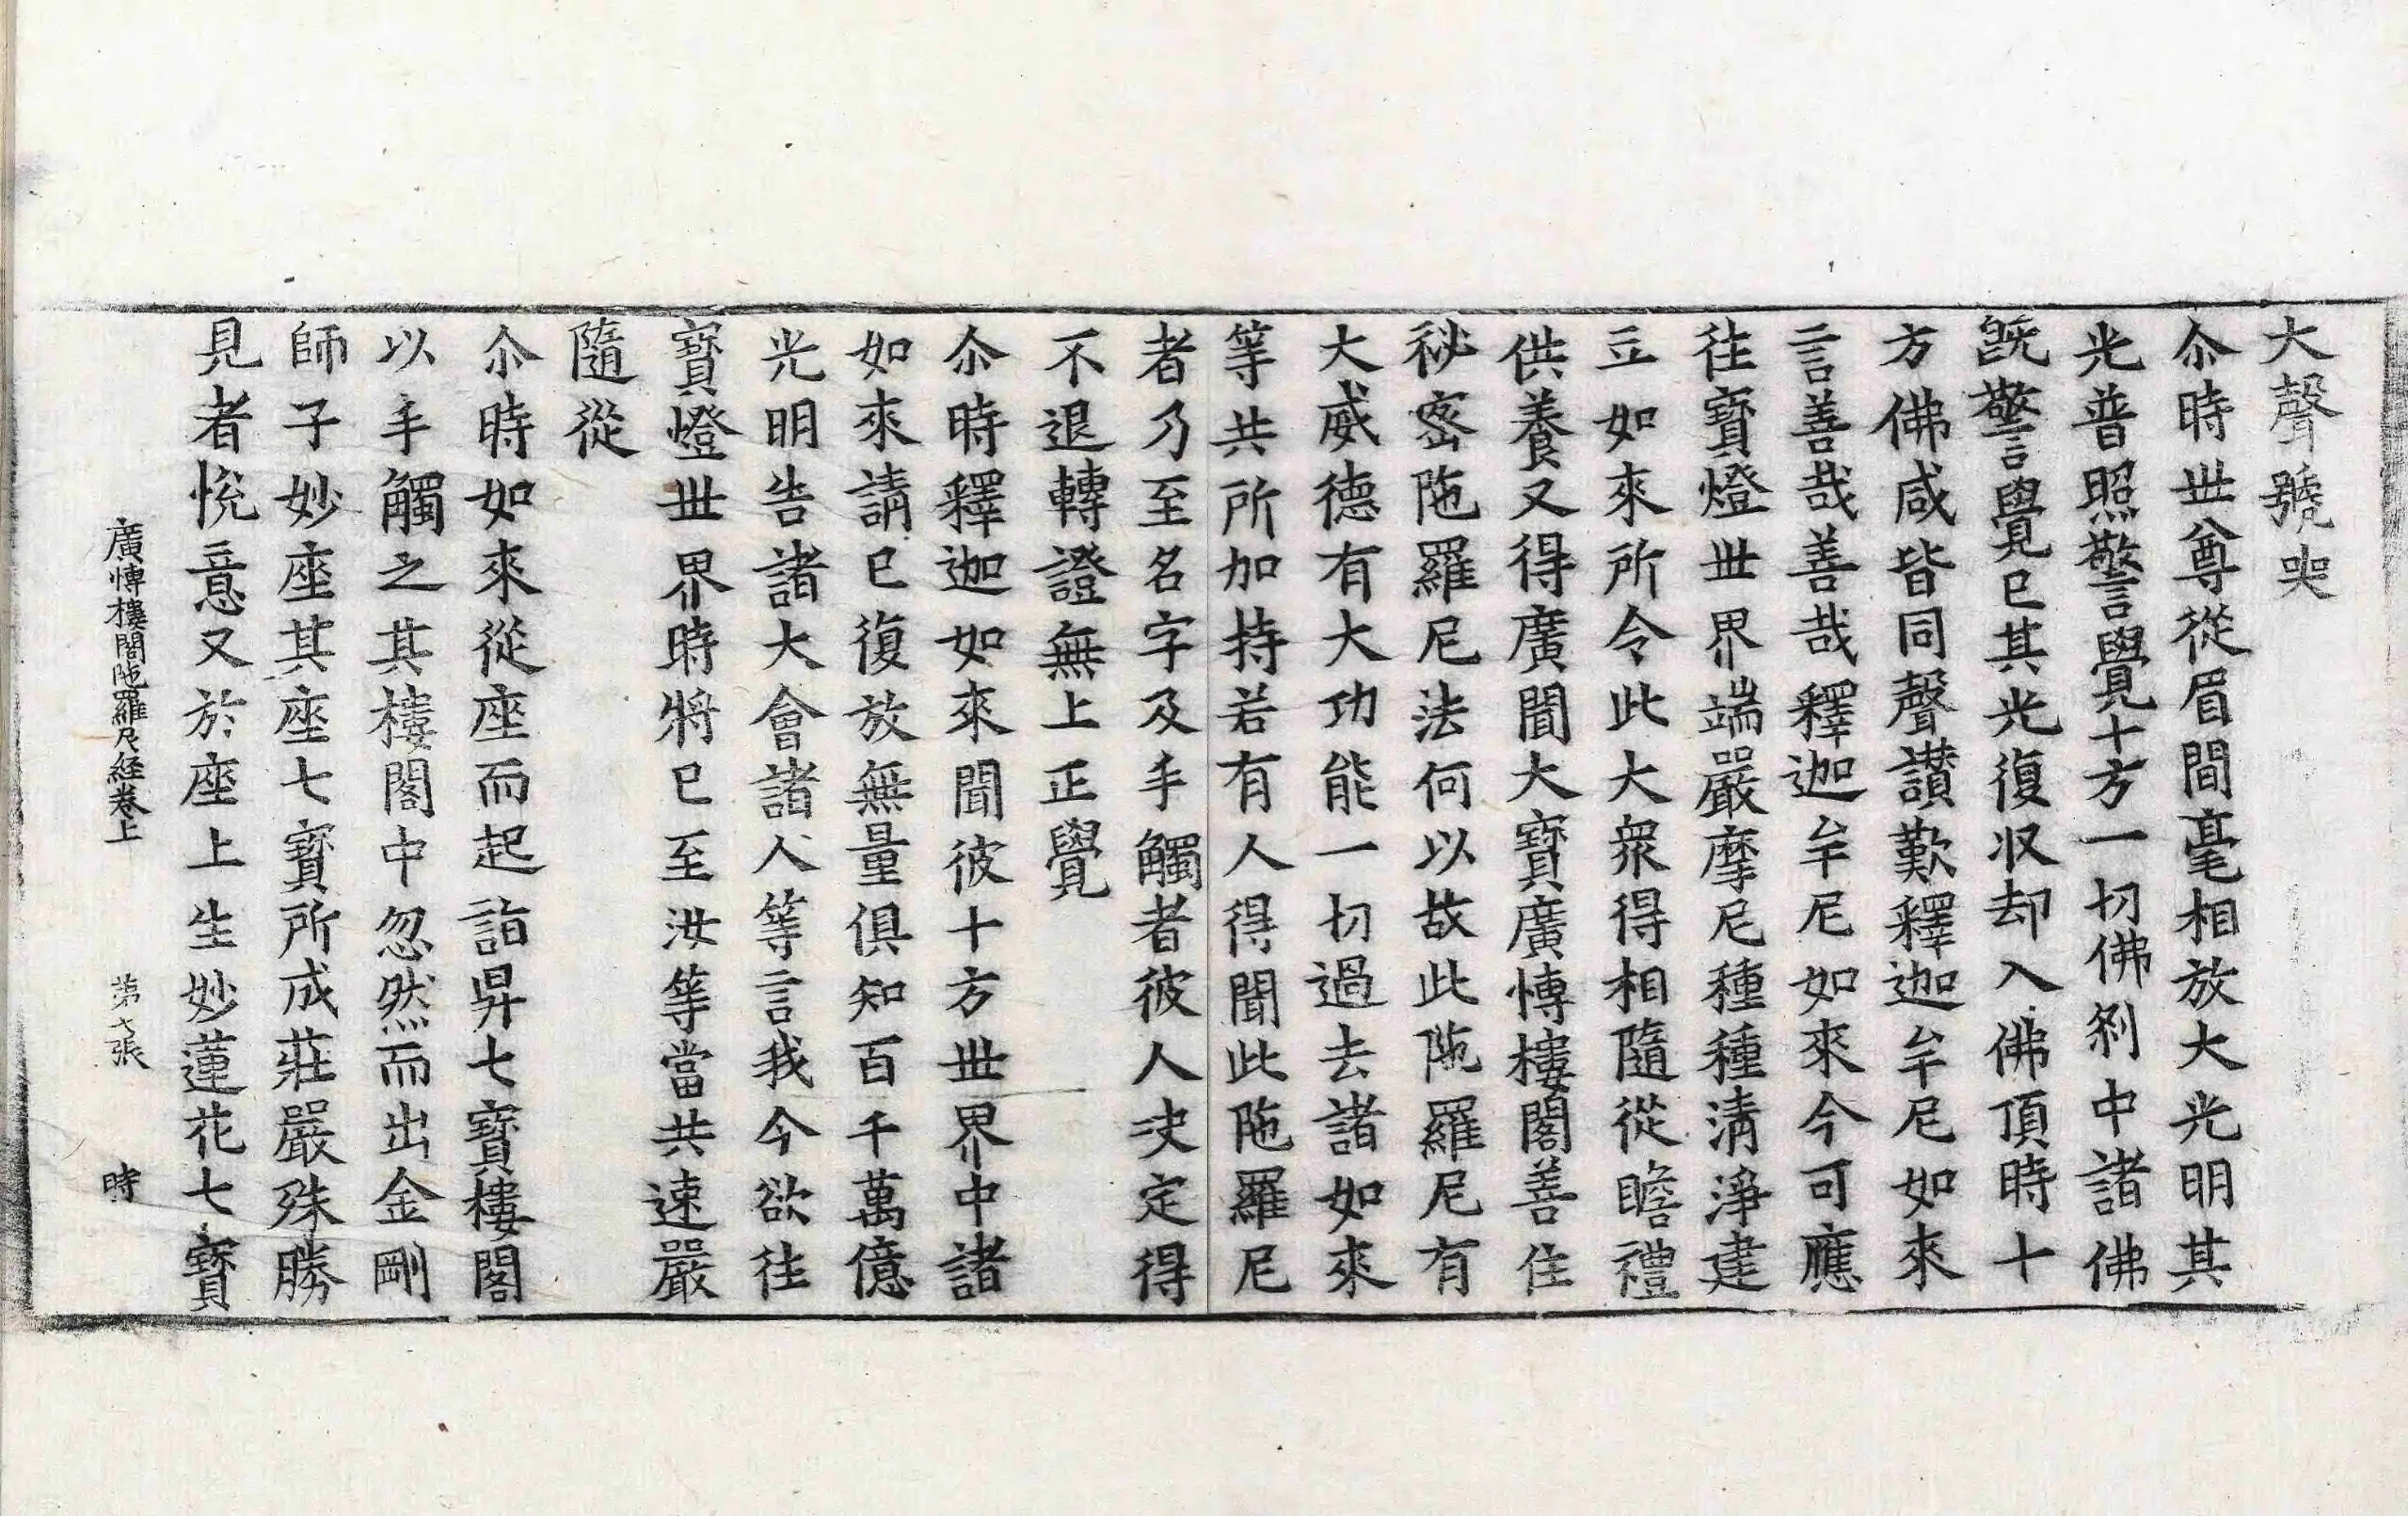 大聲號哭
尒時世尊從眉間毫相放大光明其
光普照警覺十方一切佛刹中諸佛
旣警覺已其光復収却入佛頂時十
方佛咸皆同聲讃歎釋迦牟尼如來
言善哉善哉釋迦牟尼如來今可應
徃寶燈世界端嚴摩尼種種清淨建
立如來所令此大衆得相隨從瞻禮
供養又得廣聞大寶廣愽樓閣善住
祕密陁羅尼法何以故此陁羅尼有
大威德有大功能一切過去諸如來
等共所加持若有人得聞此陁羅尼
者乃至名字及手觸者彼人决定得
不退轉證無上正覺
尒時釋迦如來聞彼十方世界中諸
如來請已復放無量俱知百千萬億
光明告諸大會諸人等言我今欲徃
寶燈世界時將已至汝等當共速嚴
隨從
尒時如來從座而起詣昇七寶樓閣
以手觸之其樓閣中忽然而出金剛
師子妙座其座七寶所成莊嚴殊勝
見者悅意又於座上生妙蓮花七寶
廣愽樓閣陁羅尼経卷上 第七張 時